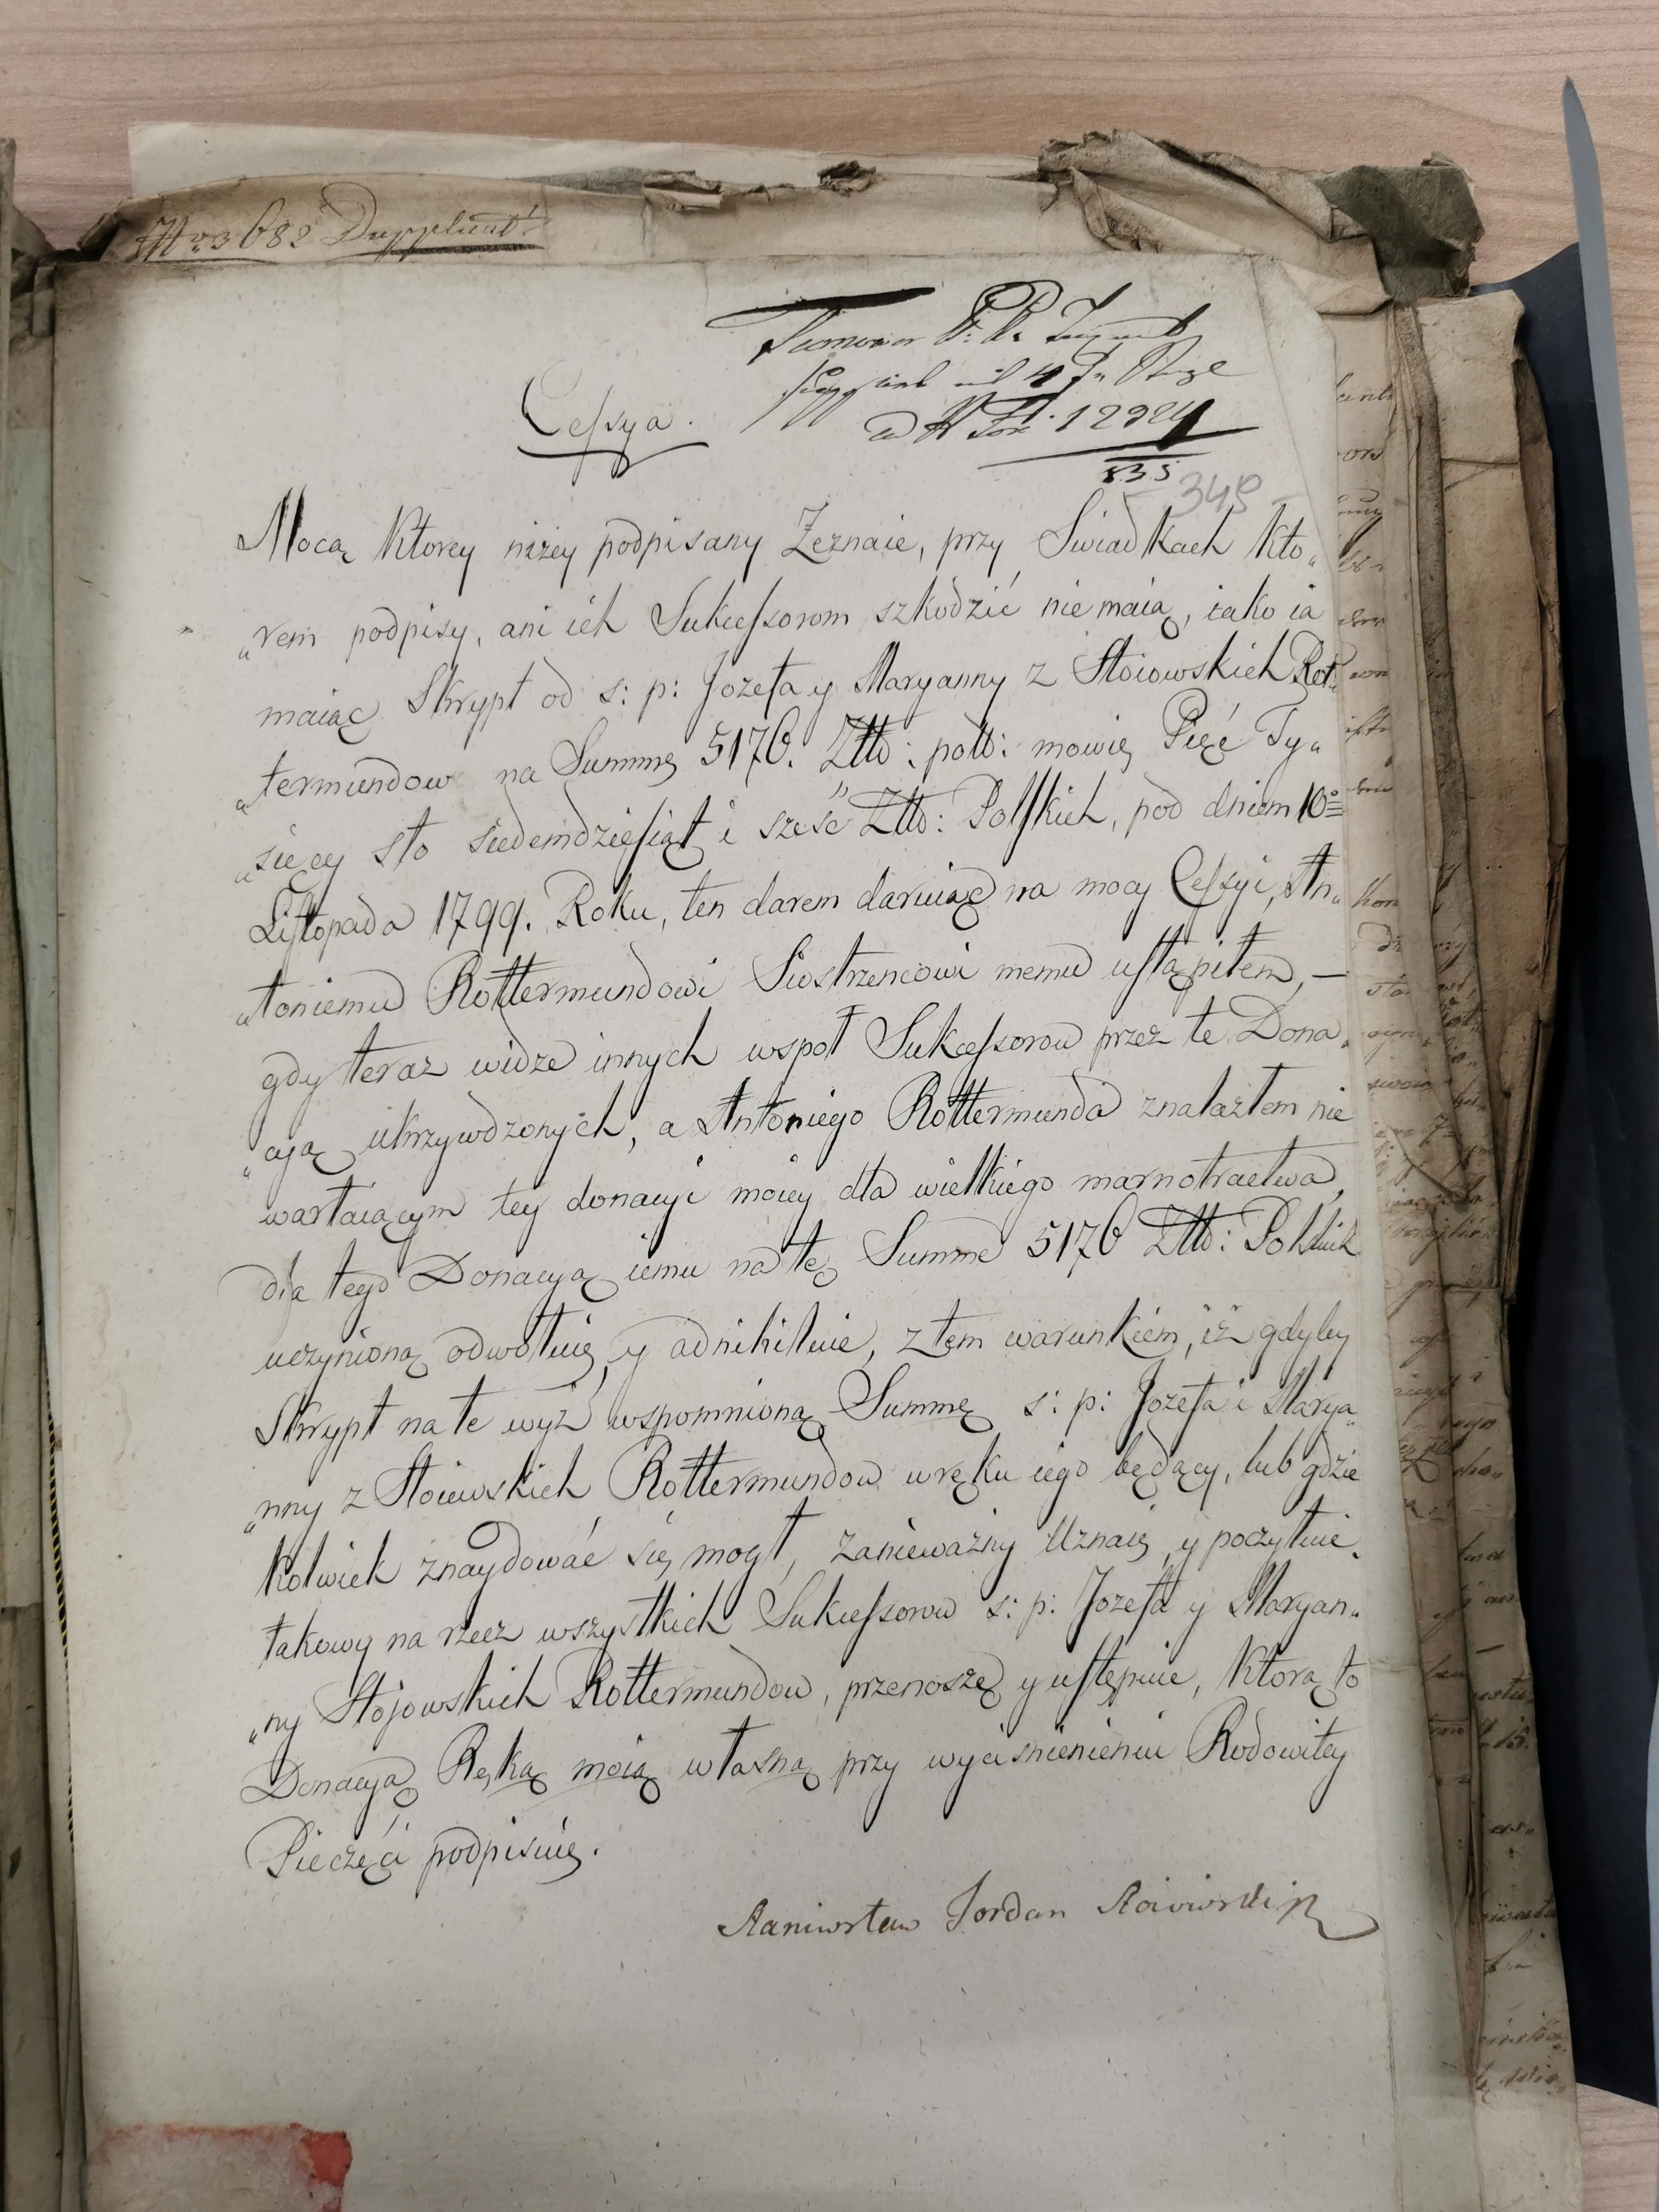 Nro 682
Cessya.
12924
835
349
Mocą Ktorey niżey podpisany Zeznaie, przy Swiadkach kto„
„rem podpisy, ani ich Sukcessorom szkodzić nie maią, iako ia
maiąc Skrypt od s: p: Jozefa y Maryanny z Stoiowskich Rot„
„termundow na Summę 5176. Złło: poll: mowię Pięć Ty„
„sięcy sto siedemdziesiąt i sześć Złło: Polskich, pod dniem 10º
Listopada 1799. Roku, ten darem daruiąc na mocy Cessyi, An„
„toniemu Rottermundowi Siostrzencowi memu ustąpiłem, —
gdy teraz widze innych wspoł Sukcessorow przez te Dona„
„cyą ukrzywdzonych, a Antoniego Rottermunda znalazłem nie
wartaiącym tey donacyi moiey dla wielkiego marnotractwa,
dla tego Donacyą iemu na tę Summe 5176 Złło: Polskich
uczynioną odwołuię, y adnihiluie, z tem warunkiem, iż gdyby
Skrypt na te wyż wspomnioną Summę s: p: Jozefa i Marya„
„nny z Stoiowskich Rottermundow w ręku iego będący, lub gdzie
kolwiek znaydować się mogł, za nieważny Uznaię y poczytuie,
takowy na rzecz wszystkich Sukcessorow s: p: Jozefa y Maryan„
„ny Stojowskich Rottermundow, przenoszę y ustępuie, Ktorą to
Donacyą Ręką moią własną przy wyciśnienieniu Rodowitey
Pieczęci podpisuię.
Stanisław Jordan Stoiowski